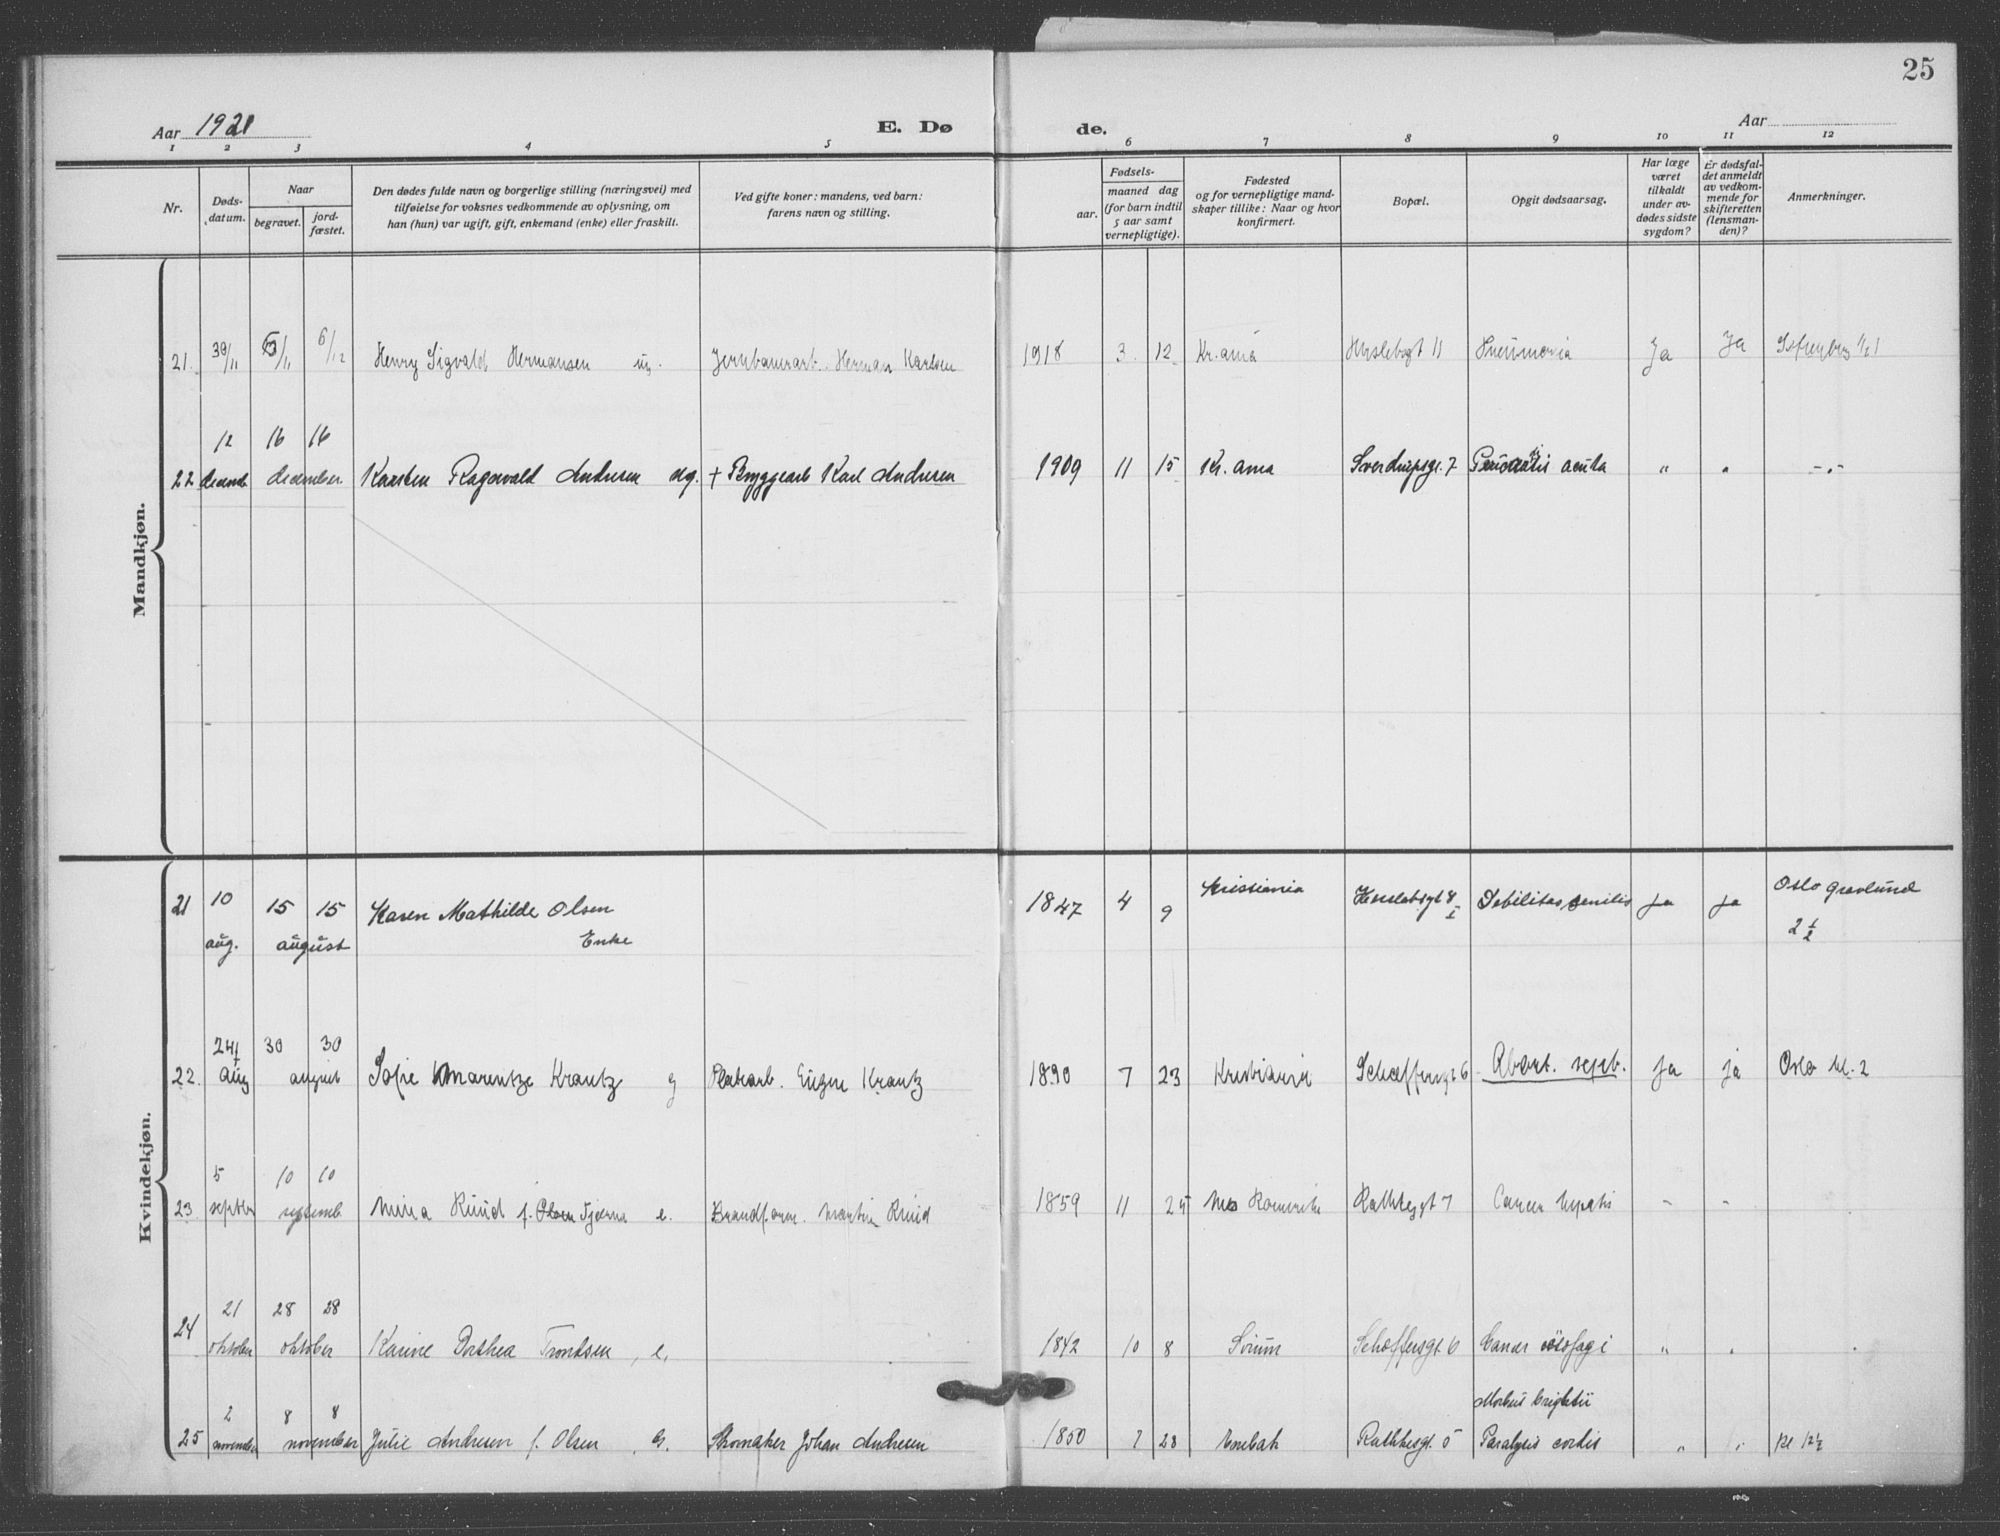 25
Aar 1921
E. Dø
de.
Aar
1 2 3 4 5 6 7 8 9 10 11 12
Nr.
Døds-
datum.
Naar
begravet.
jord-
fæstet.
Den dødes fulde navn og borgerlige stilling (næringsvei) med
tilføielse for voksnes vedkommende av oplysning, om
han (hun) var ugift, gift, enkemand (enke) eller fraskilt.
Ved gifte koner: mandens, ved barn:
farens navn og stilling.
Fødsels-
aar.
maaned dag
(for barn indtil
5 aar samt
vernepligtige).
Fødested
og for vernepligtige mand-
skaper tillike: Naar og hvor
konfirmert.
Bopæl.
Opgit dødsaarsag.
Har læge
været
tilkaldt
under av-
dødes sidste
sygdom?
Er dødsfal-
det anmeldt
av vedkom-
mende for
skifteretten
(lensman-
den)?
Anmerkninger.
Mandkjøn.
21. 30/11 6/12 Henry Sigvald Hermansen ug. Jernbanearb. Herman Karlsen 1918 3 12 Kr.ania 11 Pneumonia Ja Ja
12 16 16
22 december Karsten Ragnvald Andresen ug. + Bryggearb Karl Andresen 1909 11 15 Kr. ania Sverdrupsgt. 7 acuta " " -"-
Kvindekjøn.
21 10 15 15 Karen Mathilde Olsen 1847 4 9 Kristiania Debilitas senilis Ja Ja Oslo gravlund
aug. august Enke 2 1/2
24/ 30 30
22. aug august Sofie Marentze Krantz g Eugen Krantz 1890 7 23 Kristiania Schæffersgt 6 Abort. sept. Ja ja Oslo kl. 2
5 10 10
23. septbr septemb. Mina Ruud f. Olsen e. Martin Ruud 1859 11 25 Nes Romerike Rathkesgt 7 Cancer hepatis - -
21 28 28
24 oktober oktober Karine Dorthea Trondsen, e. 1842 10 8 Sørum Schæffersgt. 6 Cancer øsofagi " "
2 8 8 Morbus brightii
25 november november Julie Andresen f. Olsen, G. Skomaker Johan Andresen 1850 7 28 Enebak Rathkesgt. 5 Paralysis cordis " " kl 12 1/2